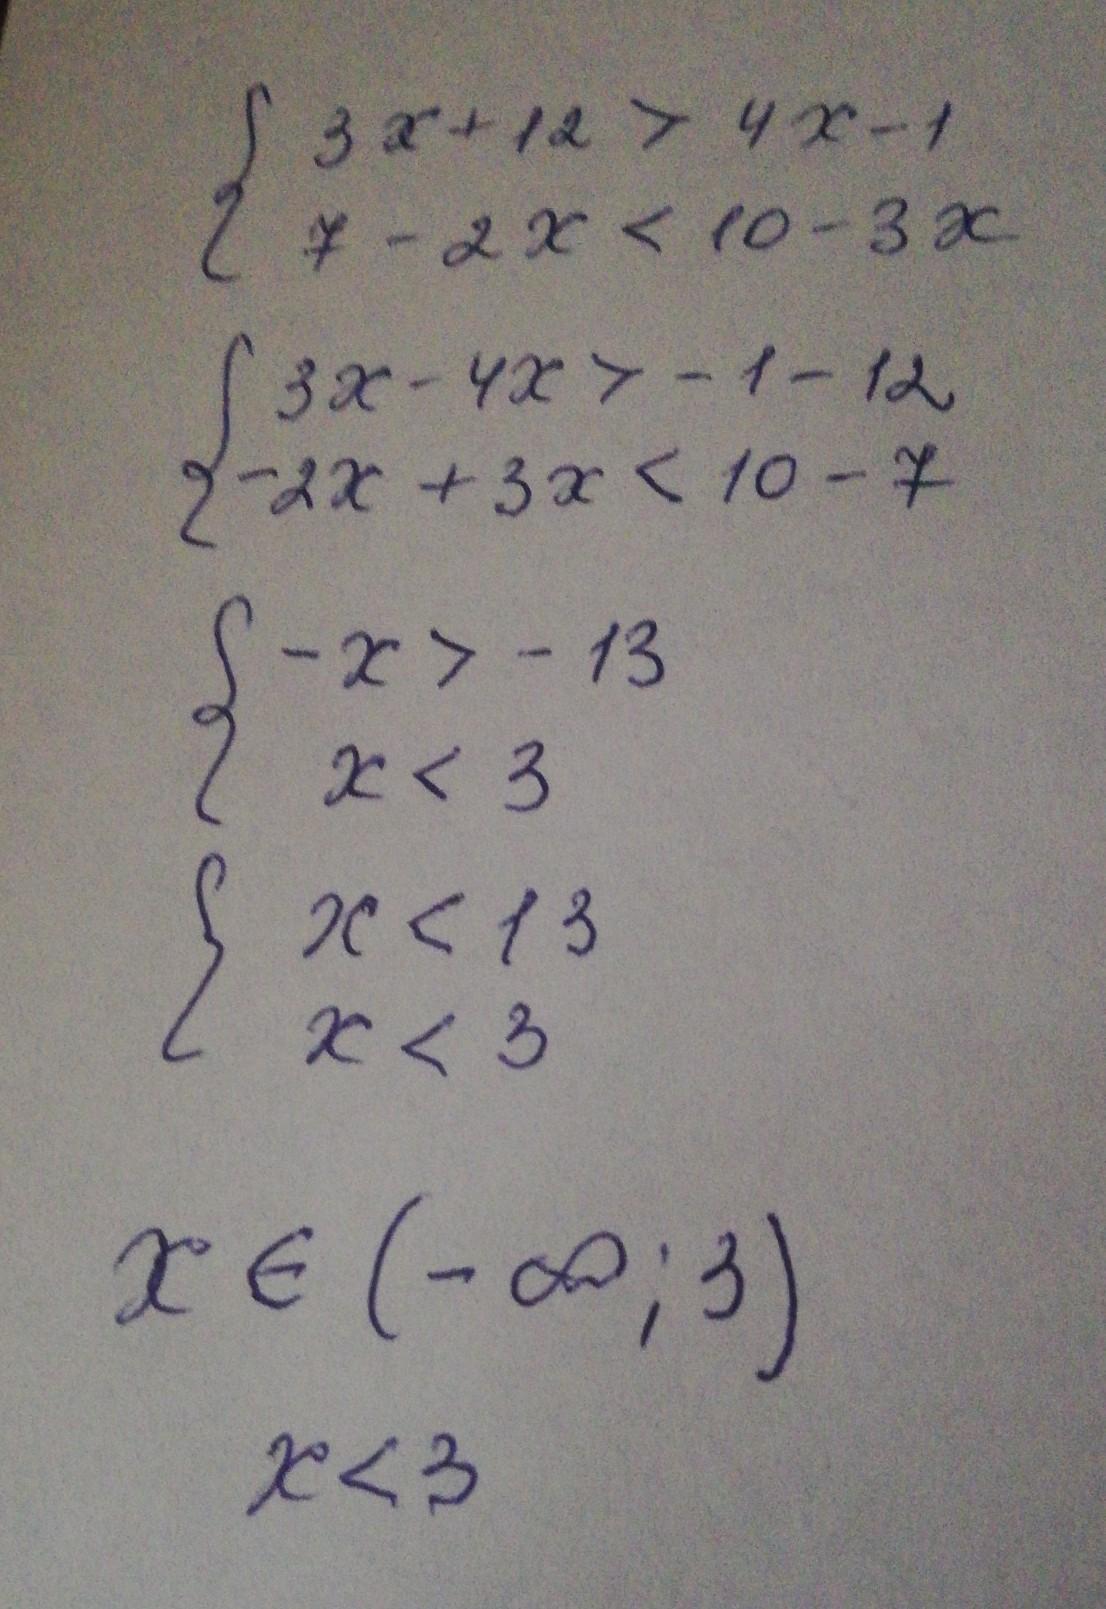 { 3x + 12 > 4x - 1
7 - 2x < 10 - 3x
{ 3x - 4x > - 1 - 12
- 2x + 3x < 10 - 7
{ - x > - 13
x < 3
{ x < 13
x < 3
x ∈ (- ∞; 3)
x < 3